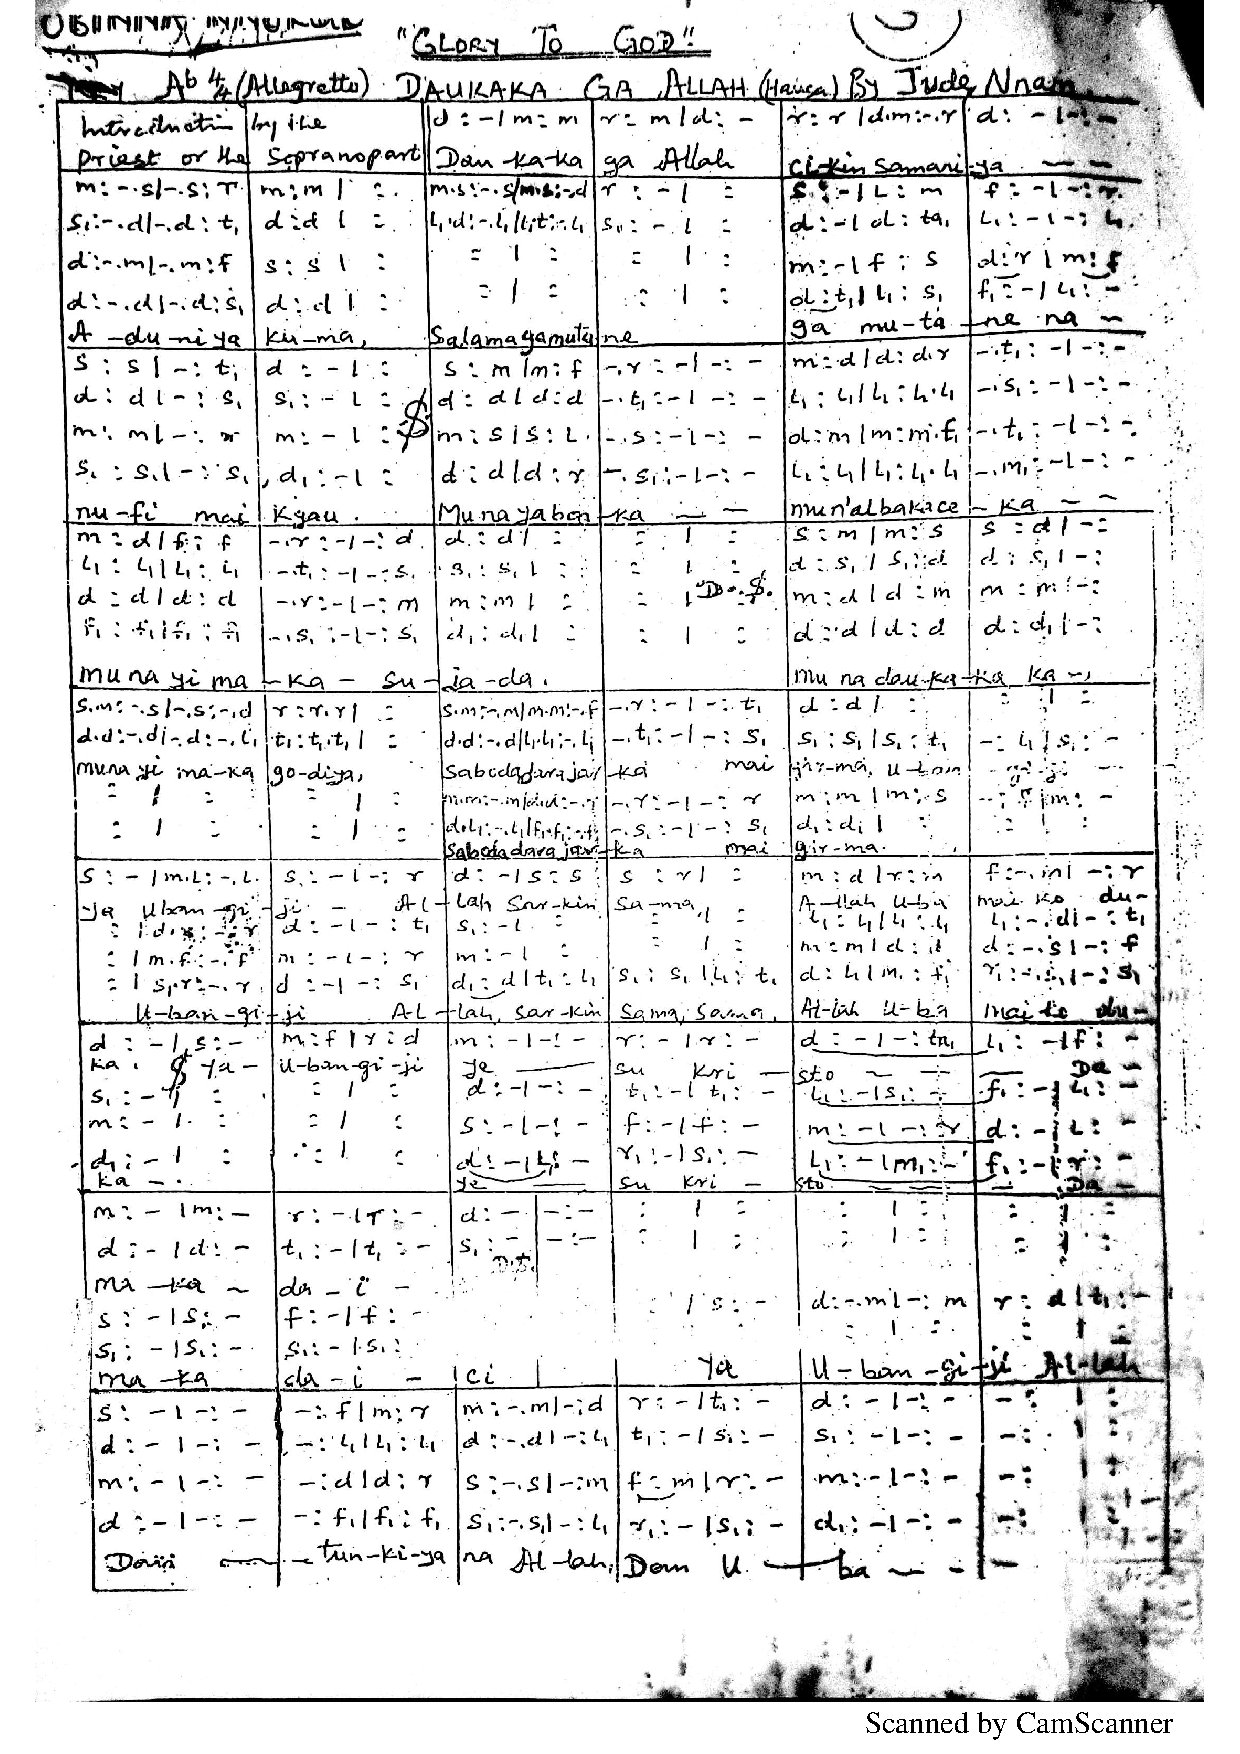 "GLORY TO GOD"
Ab 4/4 (Allegretto) DAUKAKA GA ALLAH (Hausa) By Jude Nnam
Introduction by the d : - | m : m r : m | d : - r : r | d.m : -.r d : - | - : -
Priest or the Soprano part Dau-ka-ka ga Allah ci-kin Samani-ya - -
m : -.s | -.s : r m : m | : m.s : -.s | m.s : -.d r : - | : s : - | l : m f : - | - : r
s₁ : -.d | -.d : t₁ d : d | : l₁.d : -.l₁ | l₁.t₁ : -.l₁ s₁ : - | : d : - | d : ta₁ l₁ : - | - : l₁
d : -.m | -.m : f s : s | : : | : : | : m : - | f : s d : r | m : f
d : -.d | -.d : s₁ d : d | : : | : : | : d : t₁ | l₁ : s₁ f₁ : - | l₁ : -
A -du-ni ya ku-ma, Salama ga mutu ne ga mu-ta -ne na -
s : s | - : t₁ d : - | : s : m | m : f -.r : - | - : - m : d | d : d.r -.t₁ : - | - : -
d : d | - : s₁ s₁ : - | : d : d | d : d -.t₁ : - | - : - l₁ : l₁ | l₁ : l₁.l₁ -.s₁ : - | - : -
m : m | - : r m : - | : m : s | s : l -.s : - | - : - d : m | m : m.f -.t₁ : - | - : -
s₁ : s₁ | - : s₁ d₁ : - | : d : d | d : r -.s₁ : - | - : - l₁ : l₁ | l₁ : l₁.l₁ -.m₁ : - | - : -
nu-fi mai kyau. Muna yabon -ka - - mun'albakace - ka - -
m : d | f : f -.r : - | - : d d : d | : : | : s : m | m : s s : d | - :
l₁ : l₁ | l₁ : l₁ -.t₁ : - | - : s₁ s₁ : s₁ | : : | : d : s₁ | s₁ : d d : s₁ | - :
d : d | d : d -.r : - | - : m m : m | : : | D.S. m : d | d : m m : m | - :
f₁ : f₁ | f₁ : f₁ -.s₁ : - | - : s₁ d₁ : d₁ | : : | : d : d | d : d d : d₁ | - :
mu na yi ma -ka - su - ja-da. mu na dau-ka-ka ka -,
s.m : -.s | -.s : -.d r : r.r | : s.m : -.m | m.m : -.f -.r : - | - : t₁ d : d | :
d.d : -.d | -.d : -.l₁ t₁ : t₁.t₁ | : d.d : -.d | l₁.l₁ : -.l₁ -.t₁ : - | - : s₁ s₁ : s₁ | s₁ : t₁ - : l₁ | s₁ : -
muna yi ma-ka go-diya, Saboda darajar -ka mai gir-ma, U-ban -gi-ji -
: | : : | : m.m : -.m | d.d : -.r -.r : - | - : r m : m | m : s - : f | m : -
: | : : | : d.l₁ : -.l₁ | f₁.f₁ : -.f₁ -.s₁ : - | - : s₁ d₁ : d₁ | : : | :
Saboda darajar -ka mai gir-ma.
s : - | m.l : -.l s : - | - : r d : - | s : s s : r | : m : d | r : m f : -.m | - : r
ya Uban-gi - ji - Al - lah Sar-kin sa-ma, A-llah U-ba mai ko du-
d : - | - : t₁ s₁ : - | : : | : l₁ : l₁ | l₁ : l₁ l₁ : -.d | - : t₁
: | m.f : -.f m : - | - : r m : - | : : | : m : m | d : d d : -.s | - : f
d : - | - : s₁ d₁ : d | t₁ : l₁ s₁ : s₁ | l₁ : t₁ d : l₁ | m₁ : f₁ r₁ : -.s₁ | - : s₁
U-ban-gi-ji AL - lah, Sar-kin Sama, Sama, Al-lah U-ba mai ko du-
d : - | s : - m : f | r : d m : - | - : - r : - | r : - d : - | - : ta₁ l₁ : - | f : -
ka. ya - U-ban-gi-ji ye - su Kri - sto - - - Da -
s₁ : - | : : | : d : - | - : - t₁ : - | t₁ : - l₁ : - | s₁ : - f₁ : - | l₁ : -
m : - | : : | : s : - | - : - f : - | f : - m : - | - : r d : - | l : -
d₁ : - | : : | : d : - | l₁ : - r₁ : - | s₁ : - l₁ : - | m₁ : - f₁ : - | r : -
ka -. ye - su Kri - sto - - - Da -
m : - | m : - r : - | r : - d : - | - : - : | : : | : : :
d : - | d : - t₁ : - | t₁ : - s₁ : - | - : - : | : : | : : :
D.S.
ma -ka - da - i -
s : - | s : - f : - | f : - | s : - d : -.m | - : m r : d | t₁ : -
s₁ : - | s₁ : - s₁ : - | s₁ : - : | : |
ma -ka da - i - ci ya U-ban-gi-ji Al-lah
s : - | - : - - : f | m : r m : -.m | - : d r : - | t₁ : - d : - | - : - - : | :
d : - | - : - - : l₁ | l₁ : l₁ d : -.d | - : l₁ t₁ : - | s₁ : - s₁ : - | - : - - : | :
m : - | - : - - : d | d : r s : -.s | - : m f : m | r : - m : - | - : - - : | :
d : - | - : - - : f₁ | f₁ : f₁ s₁ : -.s₁ | - : l₁ r₁ : - | s₁ : - d₁ : - | - : - - : | :
Dan - - tun-ki-ya na Al-lah, Dan U - ba - - - -
Scanned by CamScanner